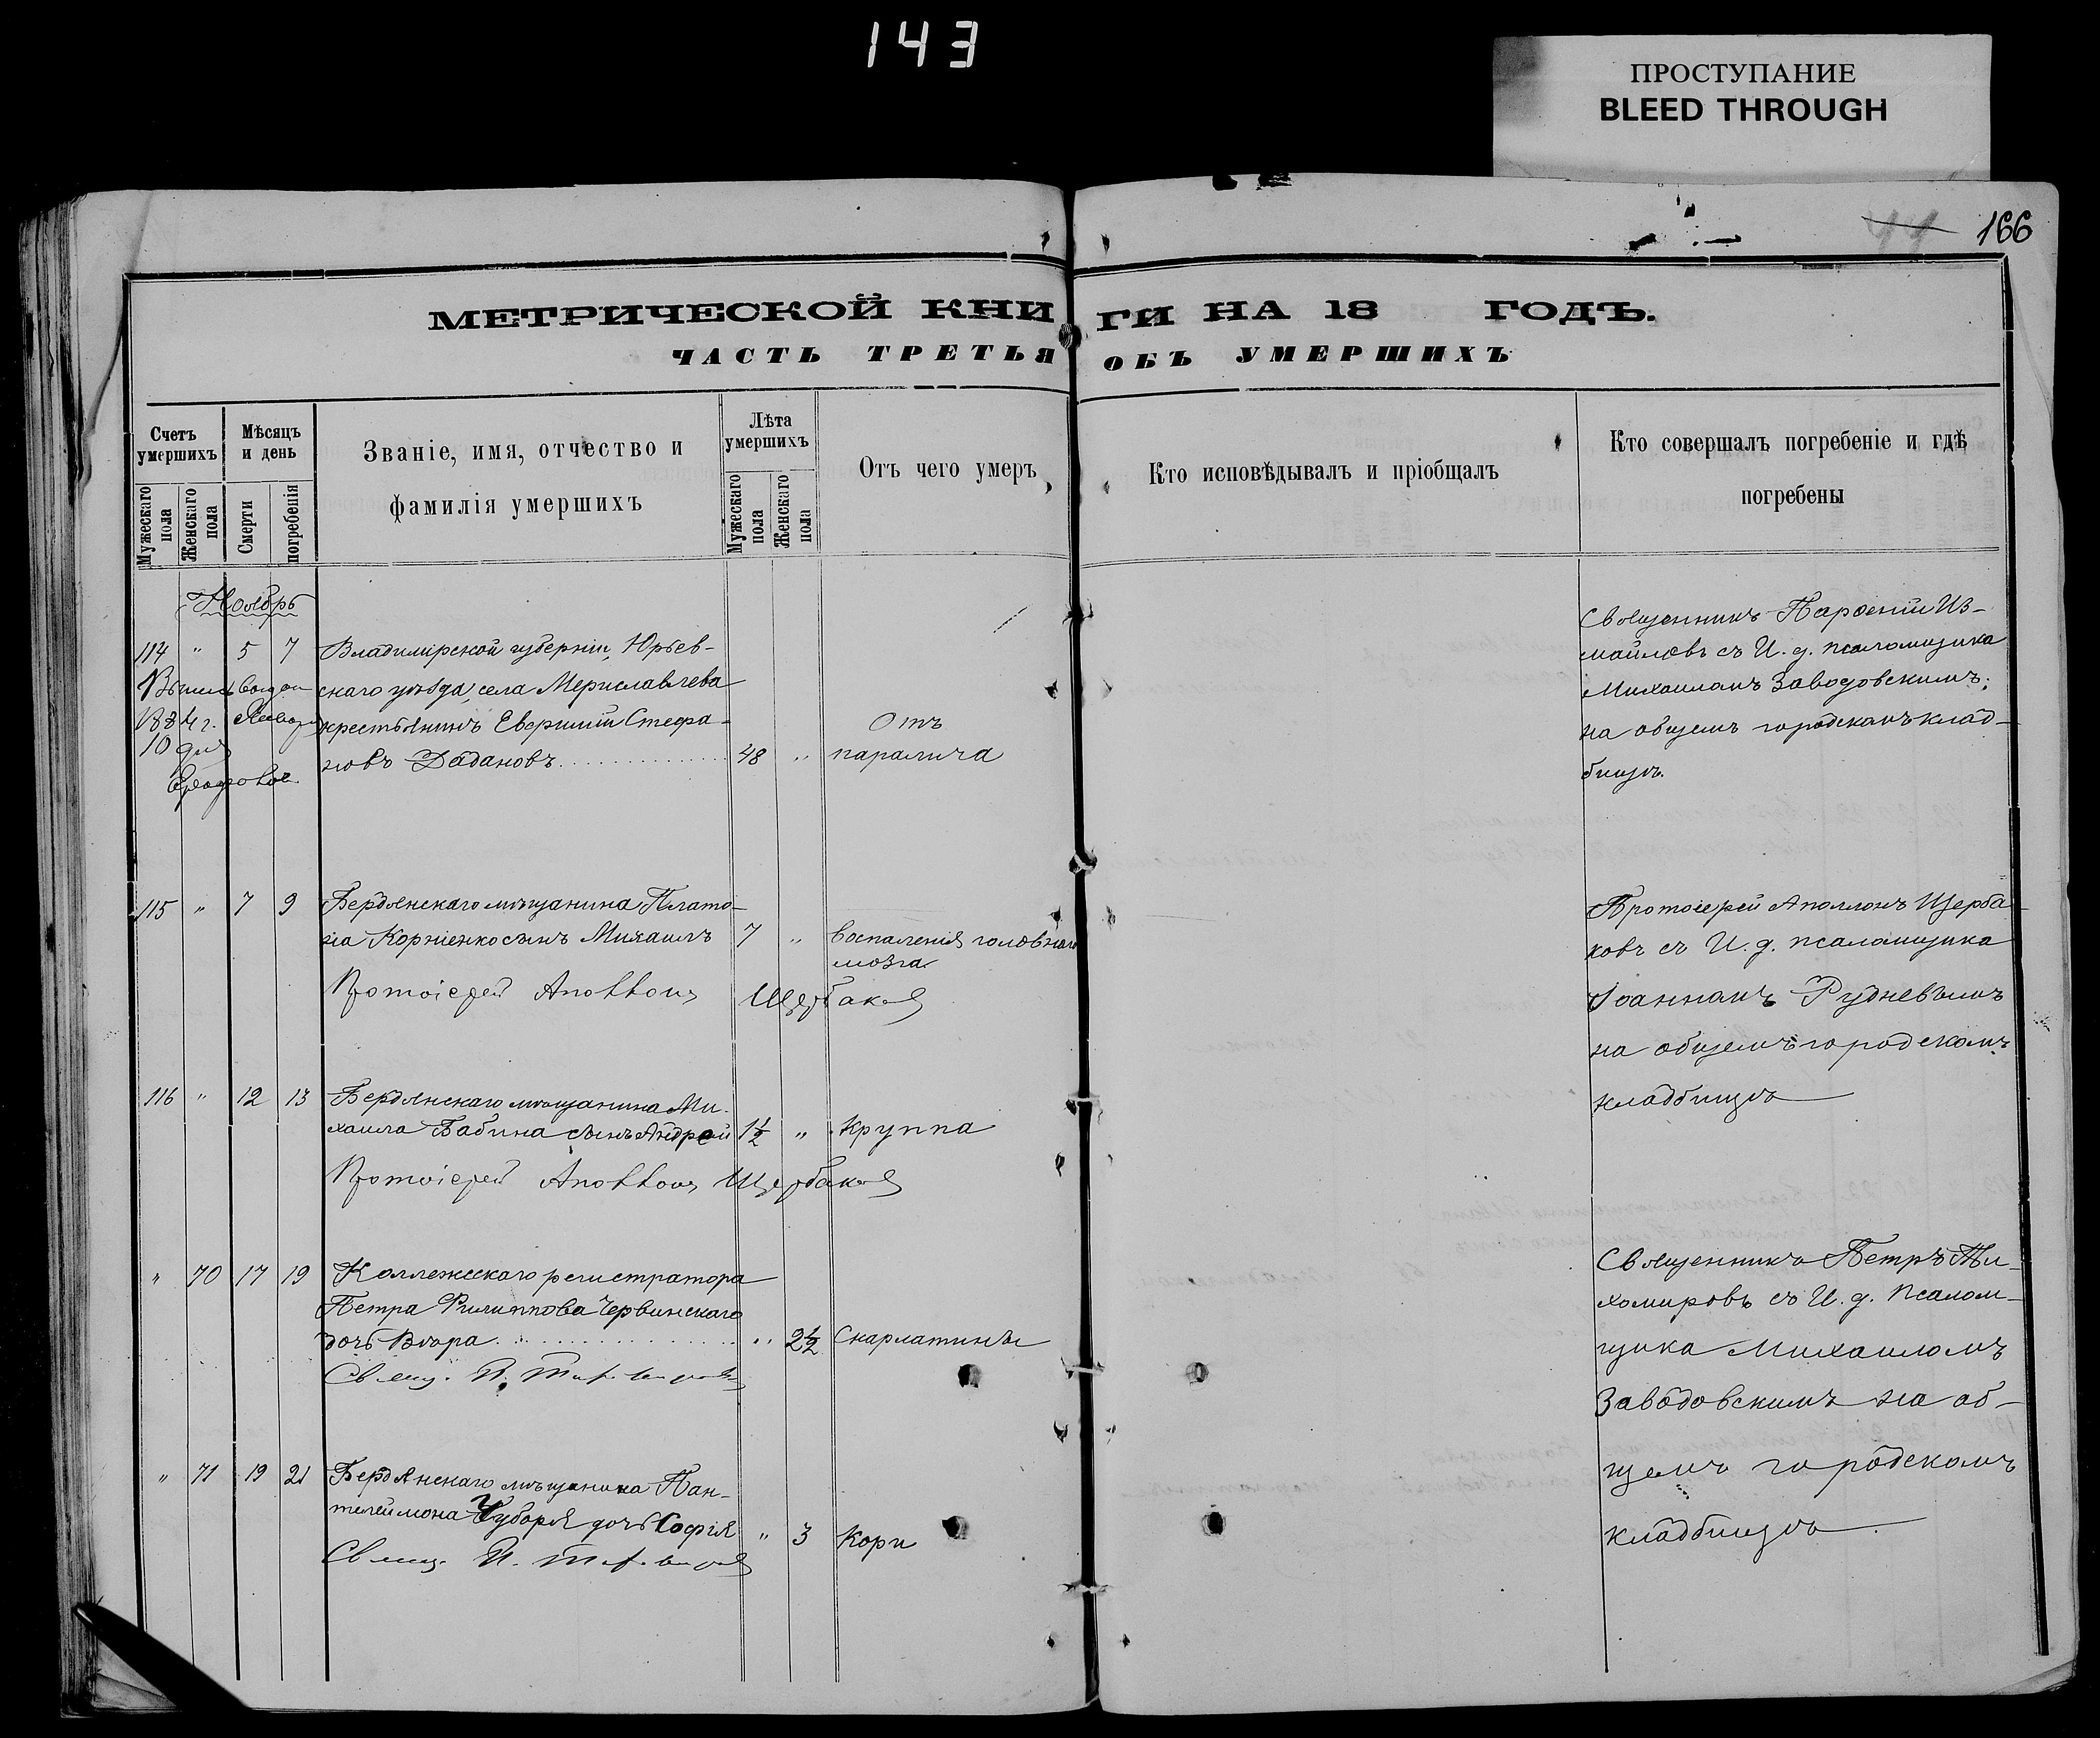 143
ПРОСТУПАНИЕ
BLEED THROUGH
166
МЕТРИЧЕСКОЙ КНИГИ НА 18 ГОДЪ.
ЧАСТЬ ТРЕТЬЯ ОБЪ УМЕРШИХЪ
Счетъ умершихъ
Мужескаго пола
Женскаго пола
Мѣсяцъ и день
Смерти
погребенія
Званіе, имя, отчество и
фамилія умершихъ
Лѣта умершихъ
Мужескаго пола
Женскаго пола
Отъ чего умеръ
Кто исповѣдывалъ и пріобщалъ
Кто совершалъ погребеніе и гдѣ
погребены
Ноябрь
114 " 5 7 Владимірской губерніи, Юрьев-
скаго уѣзда, села Мериславлева
крестьянинъ Евфимій Стефа-
новъ Дадановъ 48 " Отъ
паралича
1884 г.
10 дня
Священникъ Парѳеній Из-
майловъ съ И. д. псаломщика
Михаиломъ Заводовскимъ;
на общемъ городскомъ клад-
бищѣ.
115 " 7 9 Бердянскаго мѣщанина Плато-
на Корніенко сынъ Михаилъ 7 " воспаленія головнаго
мозга
Протоіерей Аполлонъ Щербаковъ
Протоіерей Аполлонъ Щерба-
ковъ съ И. д. псаломщика
Іоанномъ Рудневымъ
на общемъ городскомъ
кладбищѣ
116 " 12 13 Бердянскаго мѣщанина Ми-
хаила Бабина сынъ Андрей 1½ " Круппа
Протоіерей Аполлонъ Щербаковъ
" 70 17 19 Коллежскаго регистратора
Петра Филиппова Червинскаго
дочь Вѣра " 2½ Скарлатины
Свящ. П. Тихомировъ
Священникъ Петръ Ти-
хомировъ съ И. д. Псалом-
щика Михаиломъ
Заводовскимъ на об-
щемъ городскомъ
кладбищѣ
" 71 19 21 Бердянскаго мѣщанина Пан-
телеймона Чубаря дочь Софія " 3 Кори
Свящ. П. Тихомировъ